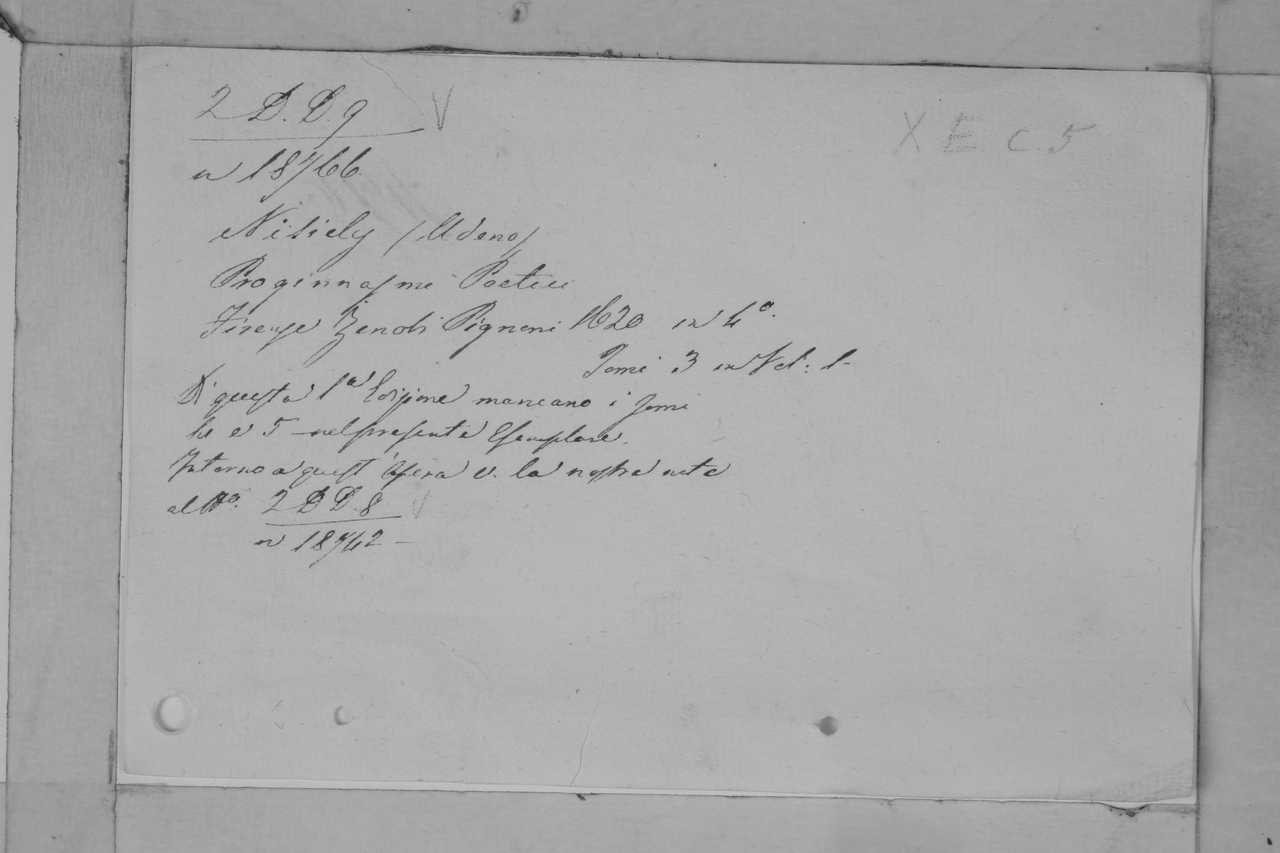 2 D.D.9 V
X E C.5
n 18766
Nisiely (Udeno)
Proginnasmi Poetici
Firenze Zenobi Pignoni 1620 in 4º.
Tomi 3 in Vol: 1-
Di questa 1ª Edizione mancano i Tomi
4 e 5 nel presente Esemplare.
Intorno a quest'opera v. la nostra nota
al Nº. 2 D D.8 V
n 18742 -